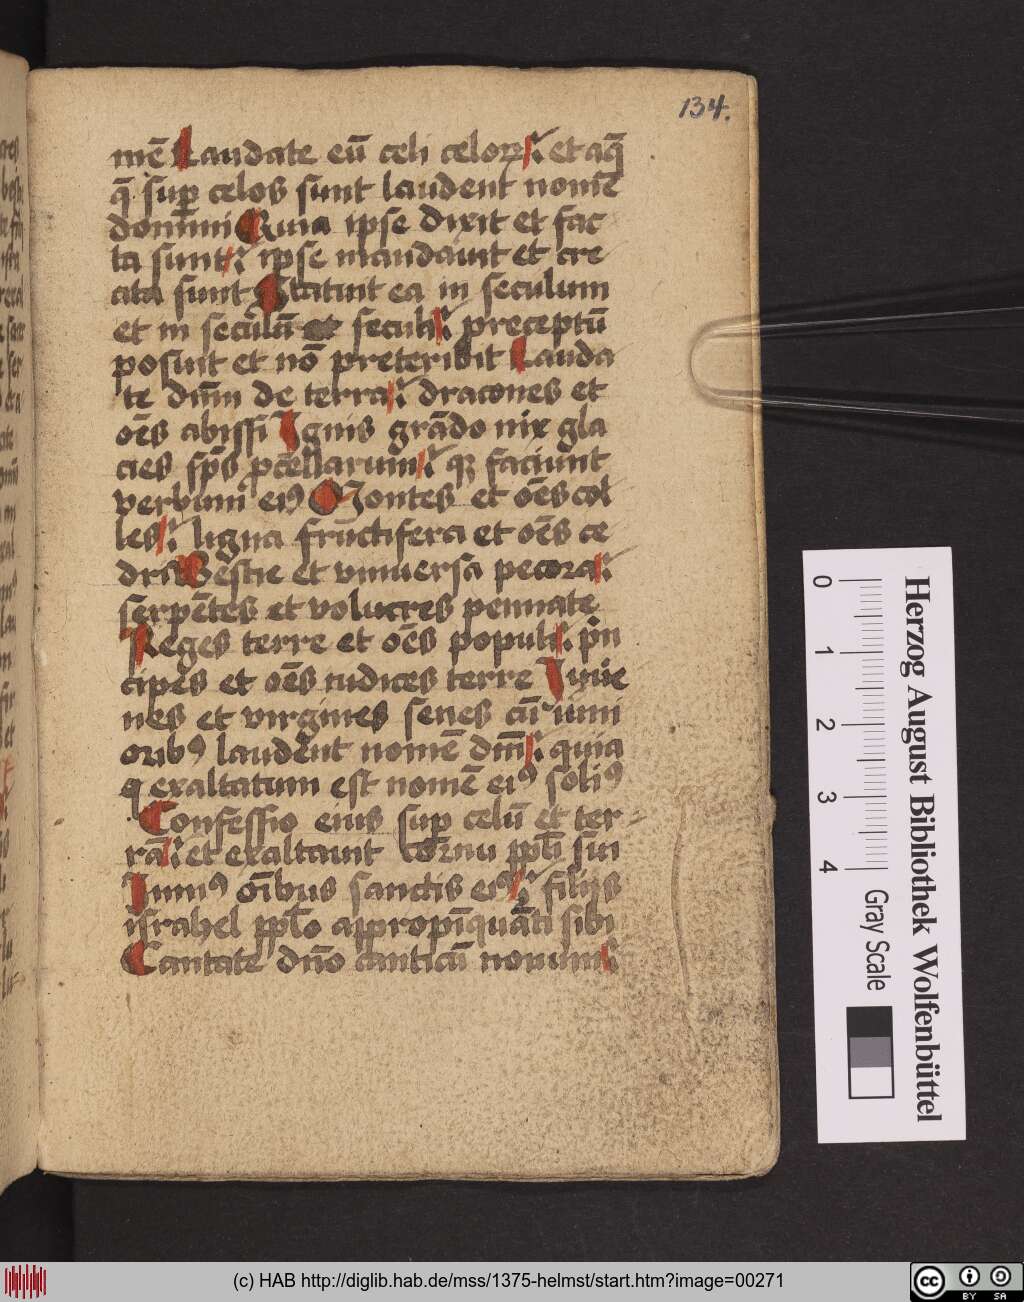 134.
mē Laudate eū celi celoꝝ et aq̄
q̄ suꝑ celos sunt laudent nomē
domini Quia ipse dixit et fac
ta sunt ipse mandauit et cre
ata sunt Statuit ea in seculum
et in seculū seculi preceptū
posuit et nō preteribit Lauda
te dn̄m de terra dracones et
oēs abissi Ignis grādo nix gla
cies sp̄s ꝓcellarum q̄ faciunt
verbum eiꝰ Montes et oēs col
les ligna fructifera et oēs ce
dri Bestie et vniuersa pecora
serpētes et volucres pennate
Reges terre et oēs populi pͥn
cipes et oēs iudices terre Iuue
nes et virgines senes cū iuni
oribꝰ laudent nomē dn̄i quia
exaltatum est nomē eiꝰ soliꝰ
Confessio eius suꝑ celū et ter
rā et exaltauit cornu ppl̄i sui
Imnꝰ oībus sanctis eiꝰ filijs
israhel ppl̄o appropīquāti sibi
Cantate dn̄o canticū nouum
Herzog August Bibliothek Wolfenbüttel
0 1 2 3 4 Gray Scale
(c) HAB http://diglib.hab.de/mss/1375-helmst/start.htm?image=00271
cc BY SA